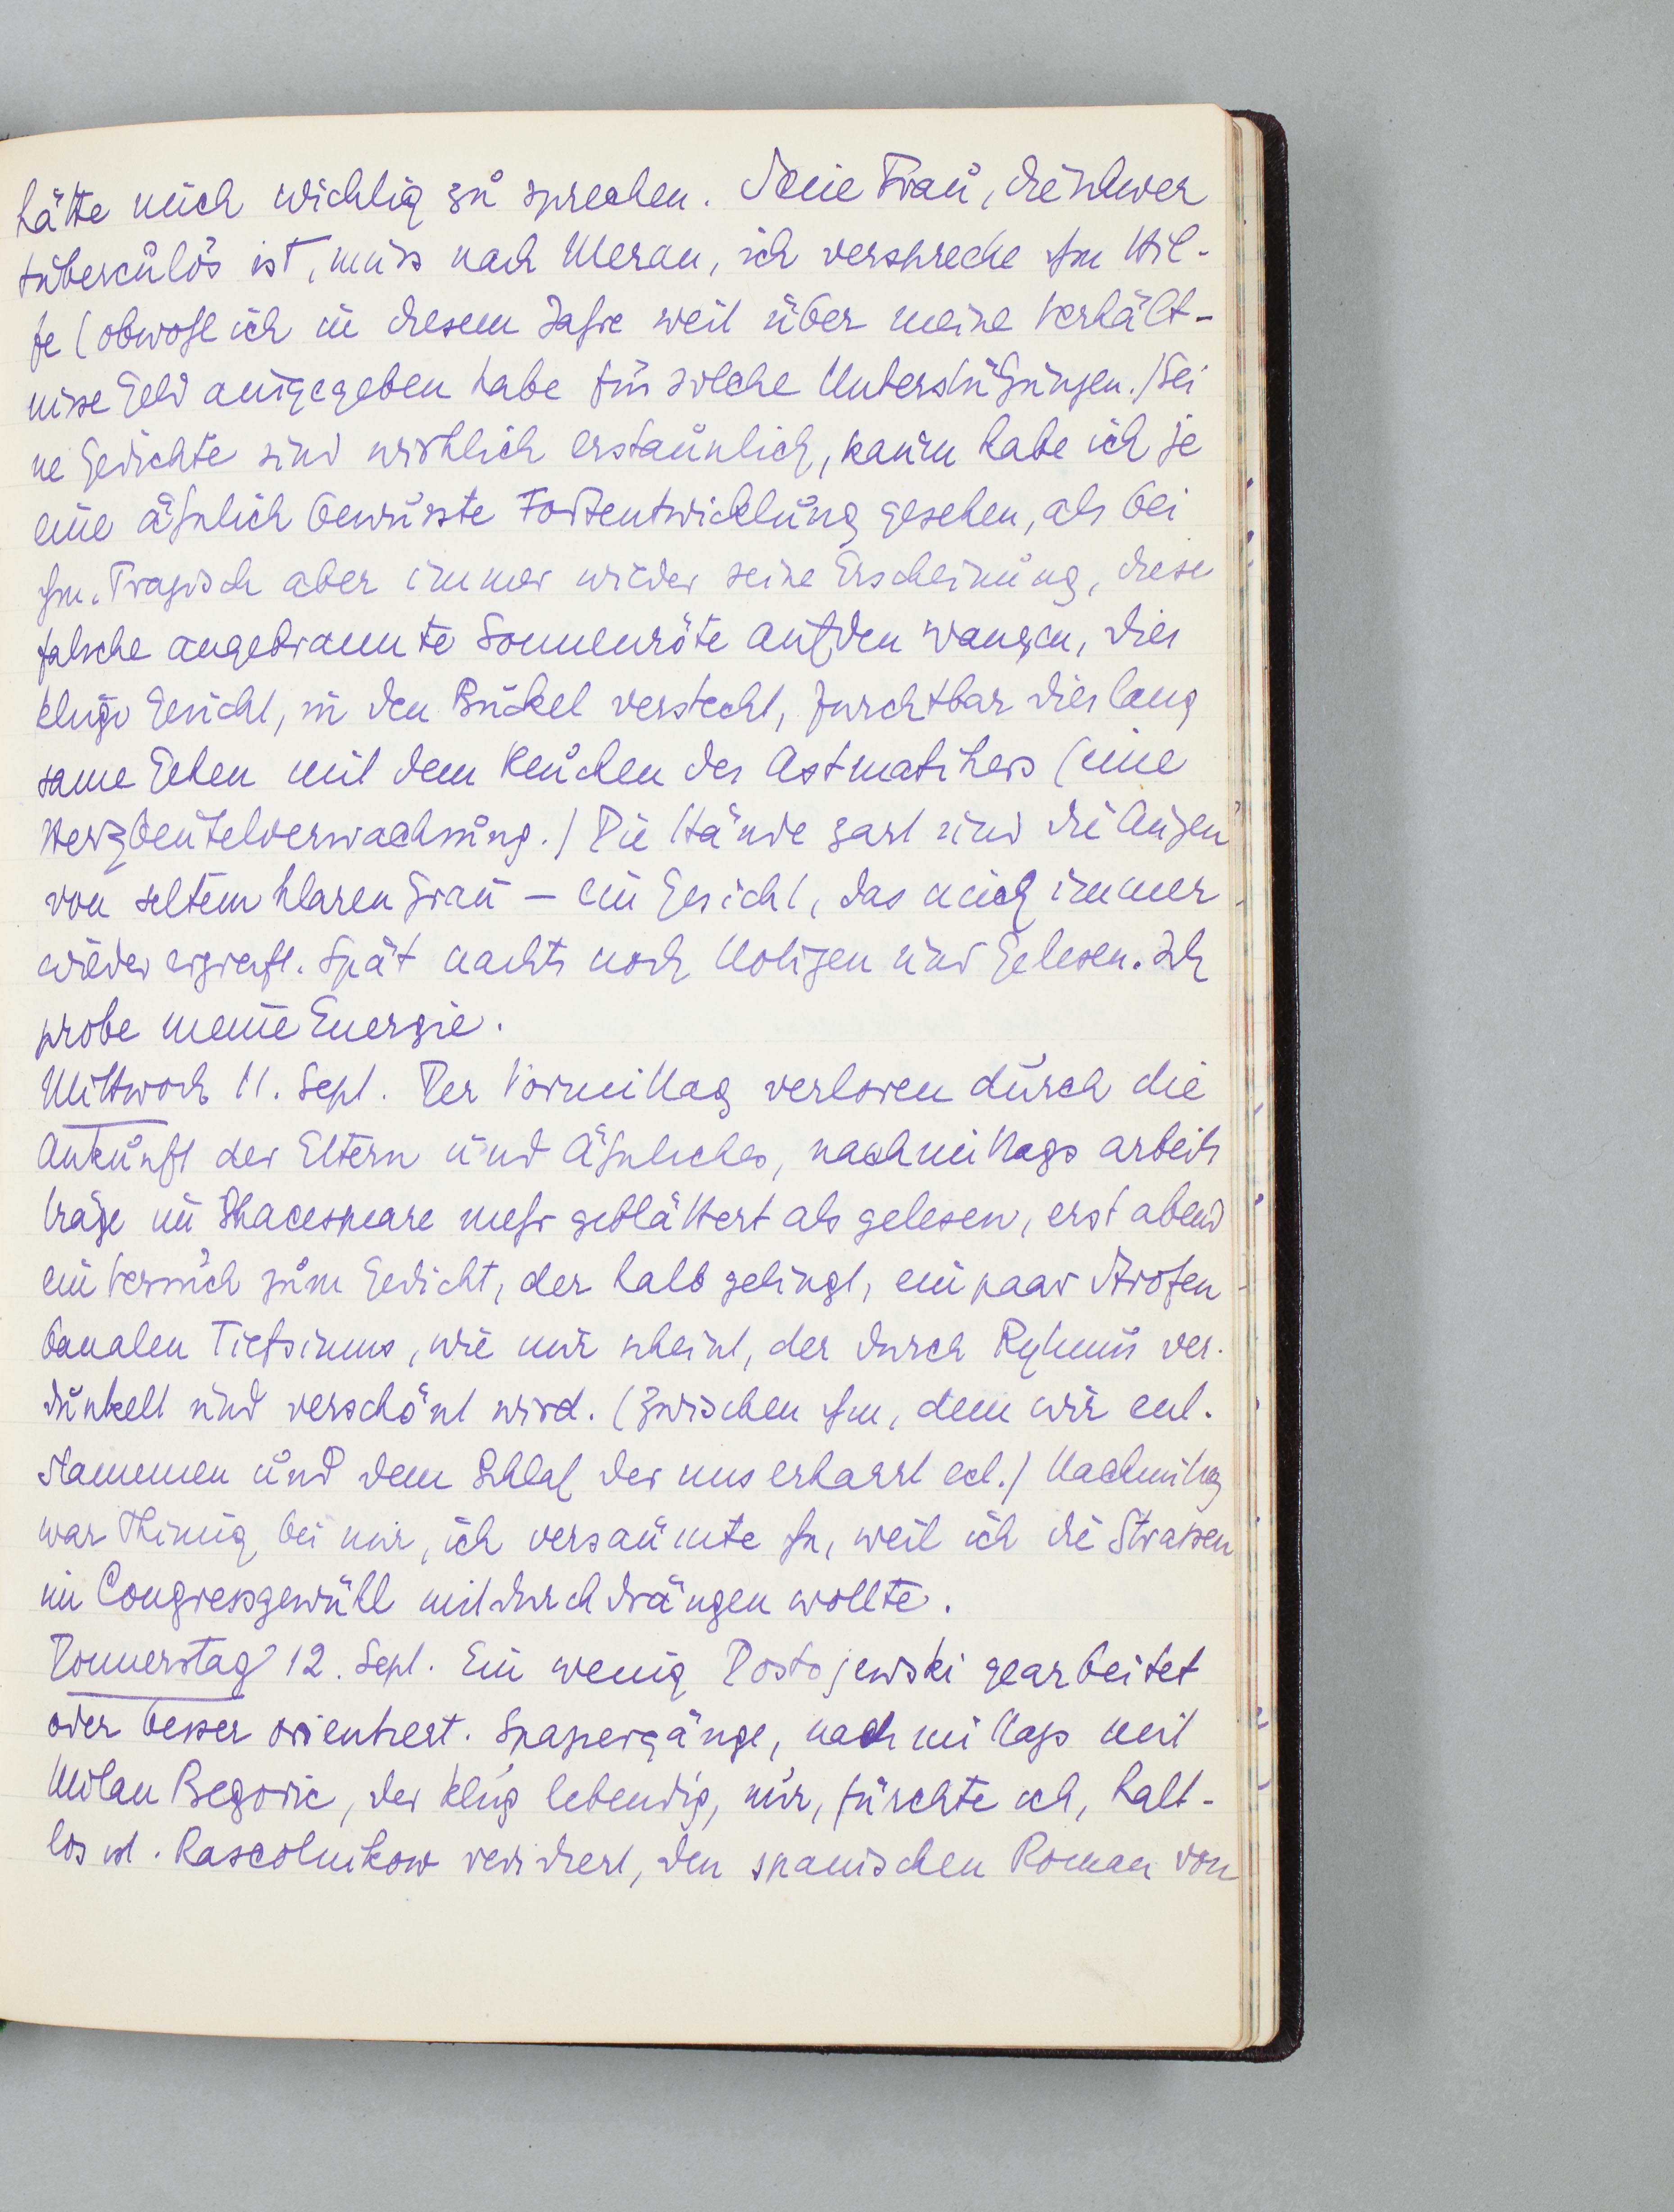 hätte mich wichtig zu sprechen. Seine Frau, die schwer
tuberculös ist, muss nach Meran, ich verspreche ihm Hil-
fe (obwohl ich in diesem Jahre weit über meine Verhält-
nisse Geld ausgegeben habe für solche Unterstützungen.) Sei
ne Gedichte sind wirklich erstaunlich, kaum habe ich je
eine ähnlich bewusste Fortentwicklung gesehen, als bei
ihm. Tragisch aber immer wieder seine Erscheinung, diese
falsche angebrannte Sonnenröte auf den Wangen, dies
kluge Gesicht, in den Buckel versteckt, furchtbar dies lang
same Gehen mit dem Keuchen des Astmatikers (eine
Herzbeutelverwachsung.) Die Hände zart und die Augen
von seltem klaren Grau – ein Gesicht, das mich immer
wieder ergreift. Spät nachts noch Notizen und Gelesen. Ich
probe meine Energie.
Mittwoch 11. Sept. Der Vormittag verloren durch die
Ankunft der Eltern und Ähnliches, nachmittags arbeits
träge im Shacespeare mehr geblättert als gelesen, erst abend
ein Versuch zum Gedicht, der halb gelingt, ein paar Strofen
banalen Tiefsinns, wie mir scheint, der durch Ryhmus ver-
dunkelt und verschönt wird. (Zwischen ihm, dem wir ent-
stammen und dem Schlaf der uns erharrt ect.) Nachmittag
war Thimig bei mir, ich versäumte ihn, weil ich die Strassen
im Congressgewühl mitdurchdrängen wollte.
Donnerstag 12. Sept. Ein wenig Dostojewski gearbeitet
oder besser orientiert. Spaziergänge, nachmittags mit
Milan Begovic, der klug lebendig, nur, fürchte ich, halt-
los ist. Rascolnikow revidiert, den spanischen Roman von